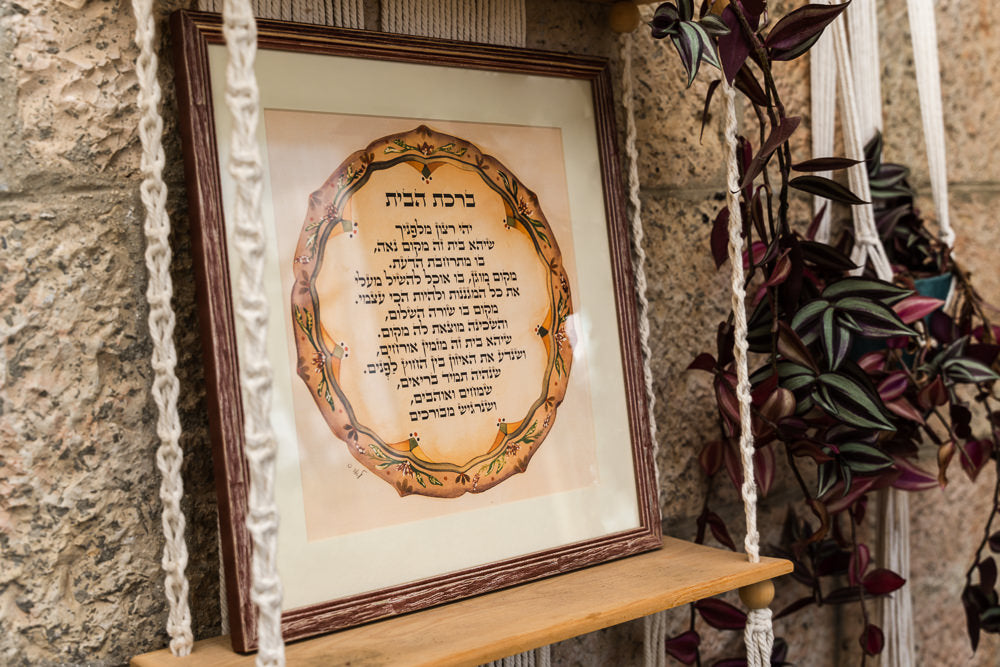 ברכת הבית
יהי רצון מלפניך
שיהא בית זה מקום נאה,
בו מתרחבת הדעת.
מקום מוגן, בו אוכל להשיל מעלי
את כל המגננות ולהיות הכי עצמי.
מקום בו שורה השלום,
והשכינה מוצאת לה מקום.
שיהא בית זה מזמין אורחים,
ושנדע את האיזון בין החוץ לפנים.
שנהיה תמיד בריאים,
שמחים ואוהבים,
ושנרגיש מבורכים